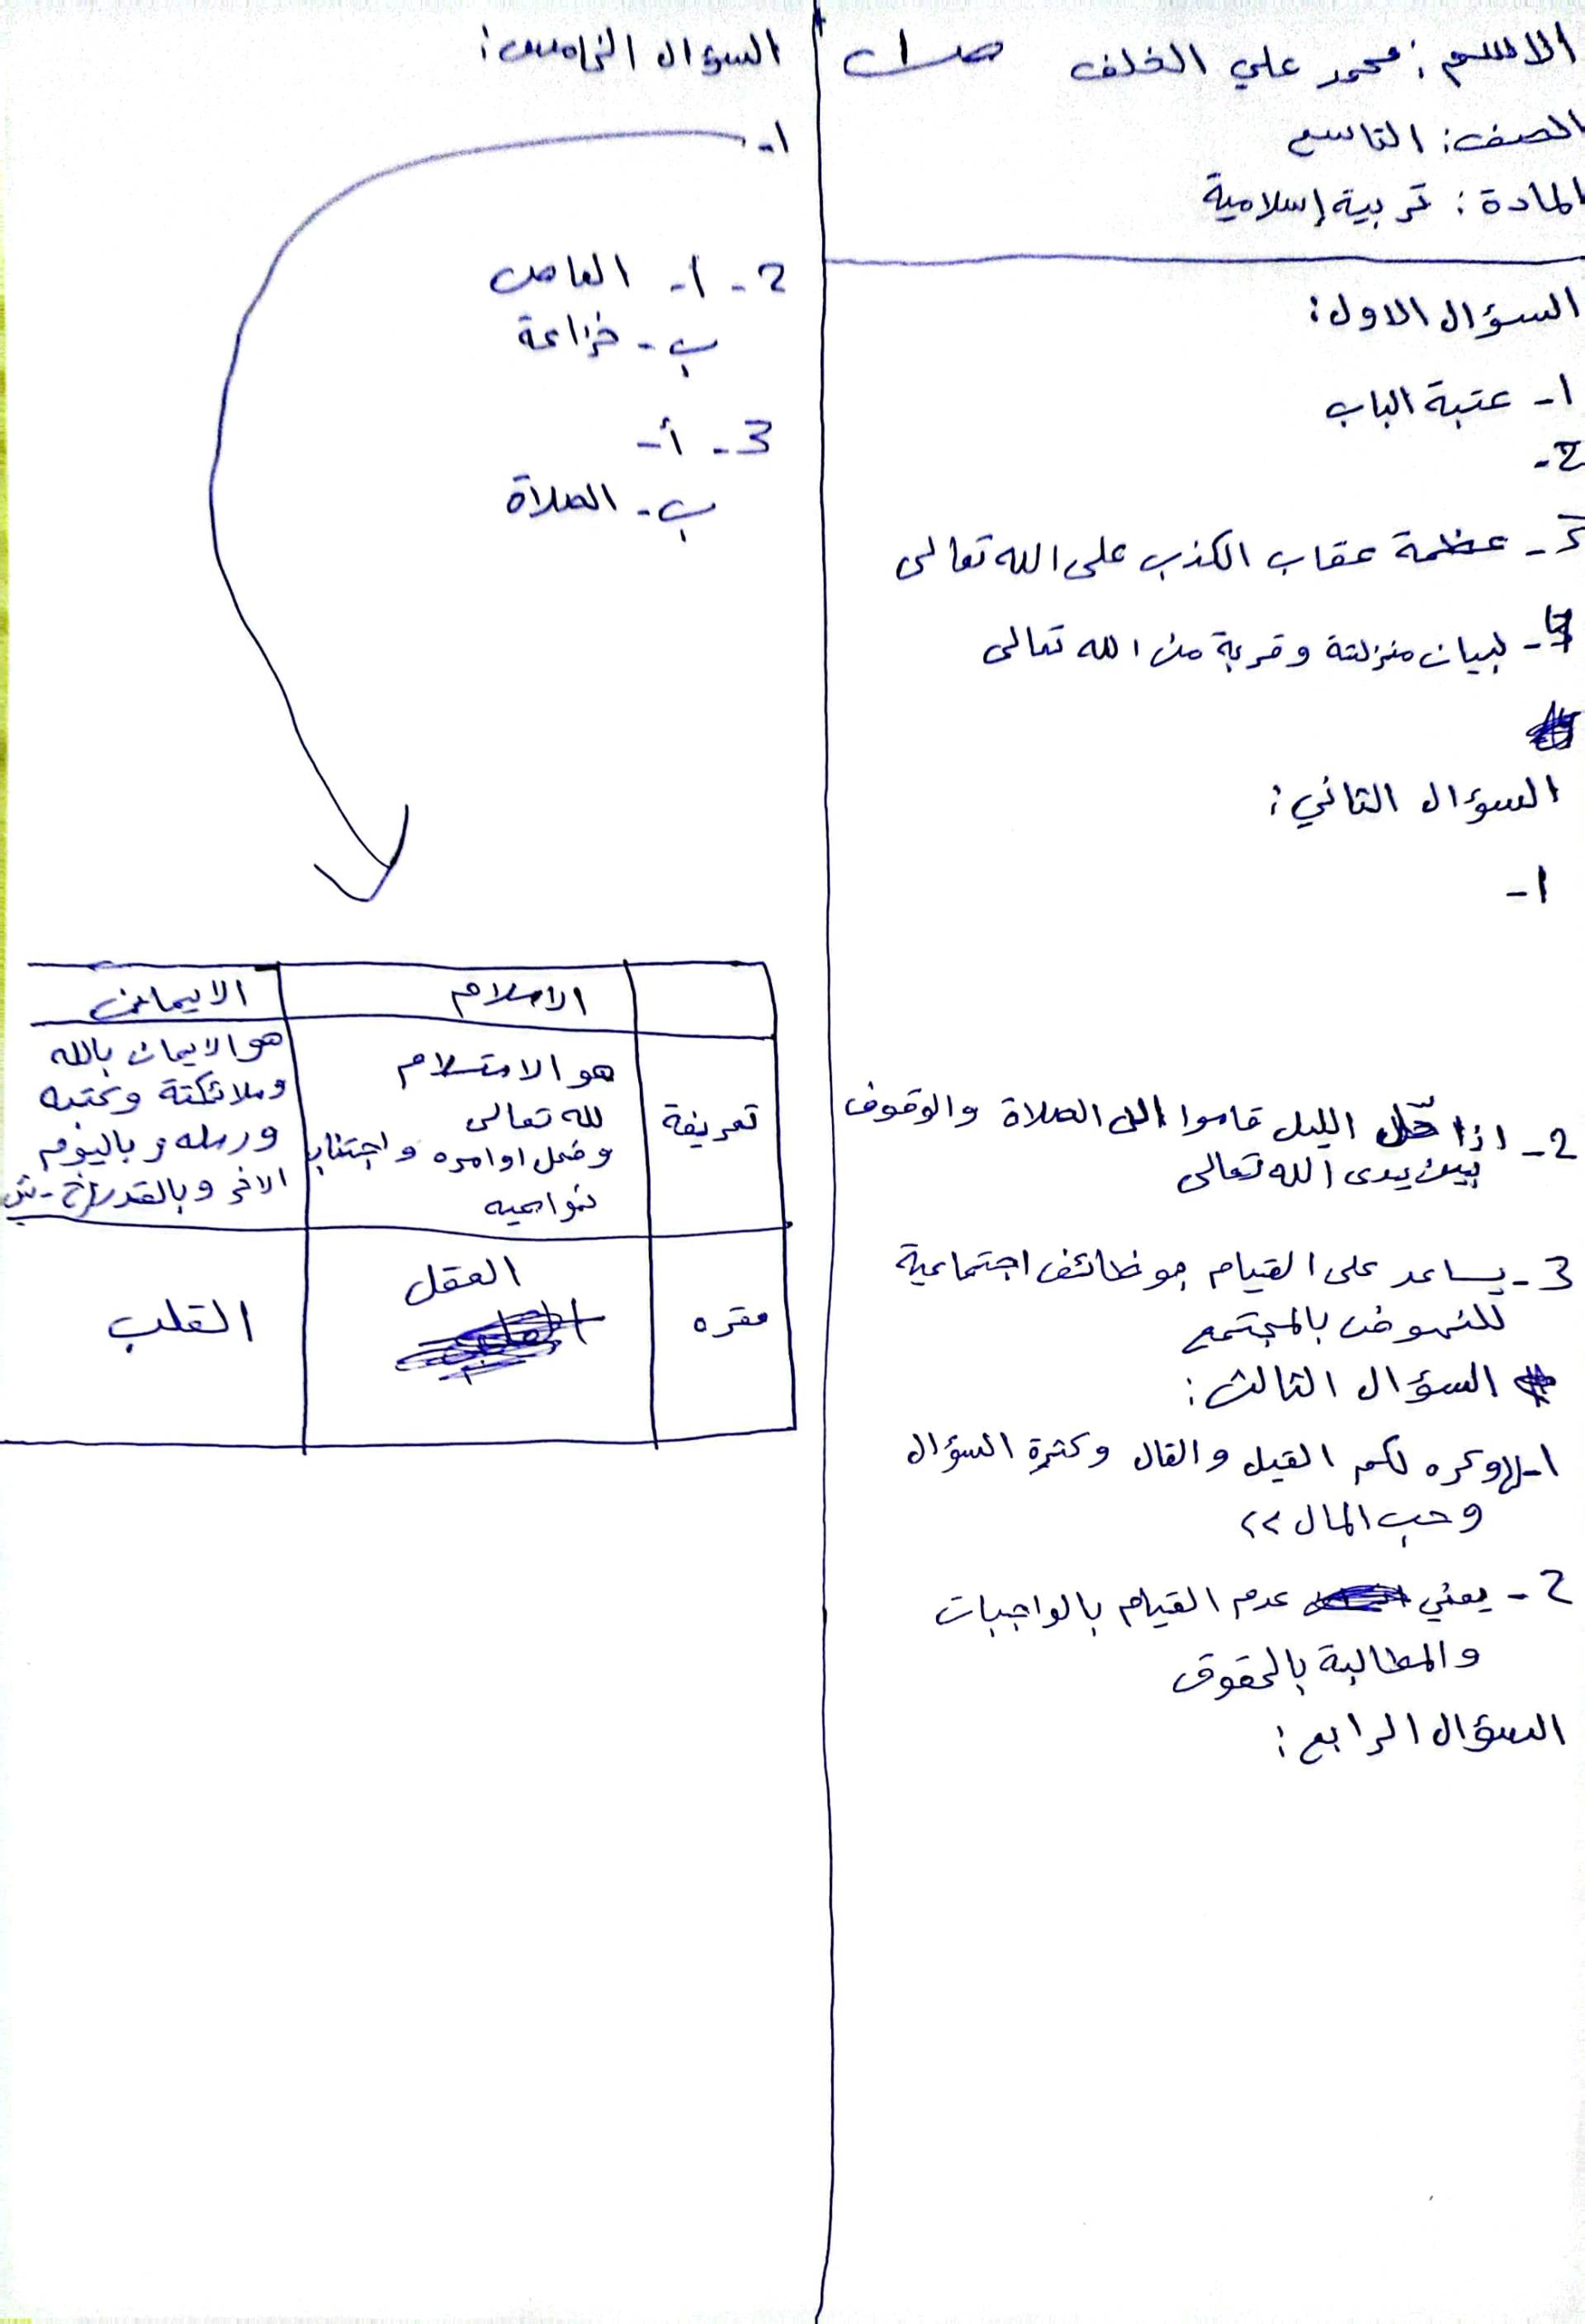 الاسم : محمد علي الخلف ص١
الصف : التاسع
المادة : تربية إسلامية
السؤال الاول :
١- عتبة الباب
2-
3- عظمة عقاب الكذب على الله تعالى
4- لبيان منزلتة وقربة من الله تعالى
السؤال الثاني :
١-
2- اذا حلّ الليل قاموا الى الصلاة والوقوف
بين يدى الله تعالى
3- يساعد على القيام بوظائف اجتماعية
للنهوض بالمجتمع
السؤال الثالث :
١- وكره لكم القيل والقال وكثرة السؤال
وحب المال >>
2- يعني عدم القيام بالواجبات
والمطالبة بالحقوق
السؤال الرابع :
السؤال الخامس :
١-
2- ١- العاص
ب- خزاعة
3- أ-
ب- الصلاة
الاسلام الايمان
تعريفة
هو الاستسلام
لله تعالى
وفعل اوامره واجتناب
نواهيه
هو الايمان بالله
وملائكتة وكتبه
ورسله و باليوم
الاخر وبالقدر
مقره العقل القلب